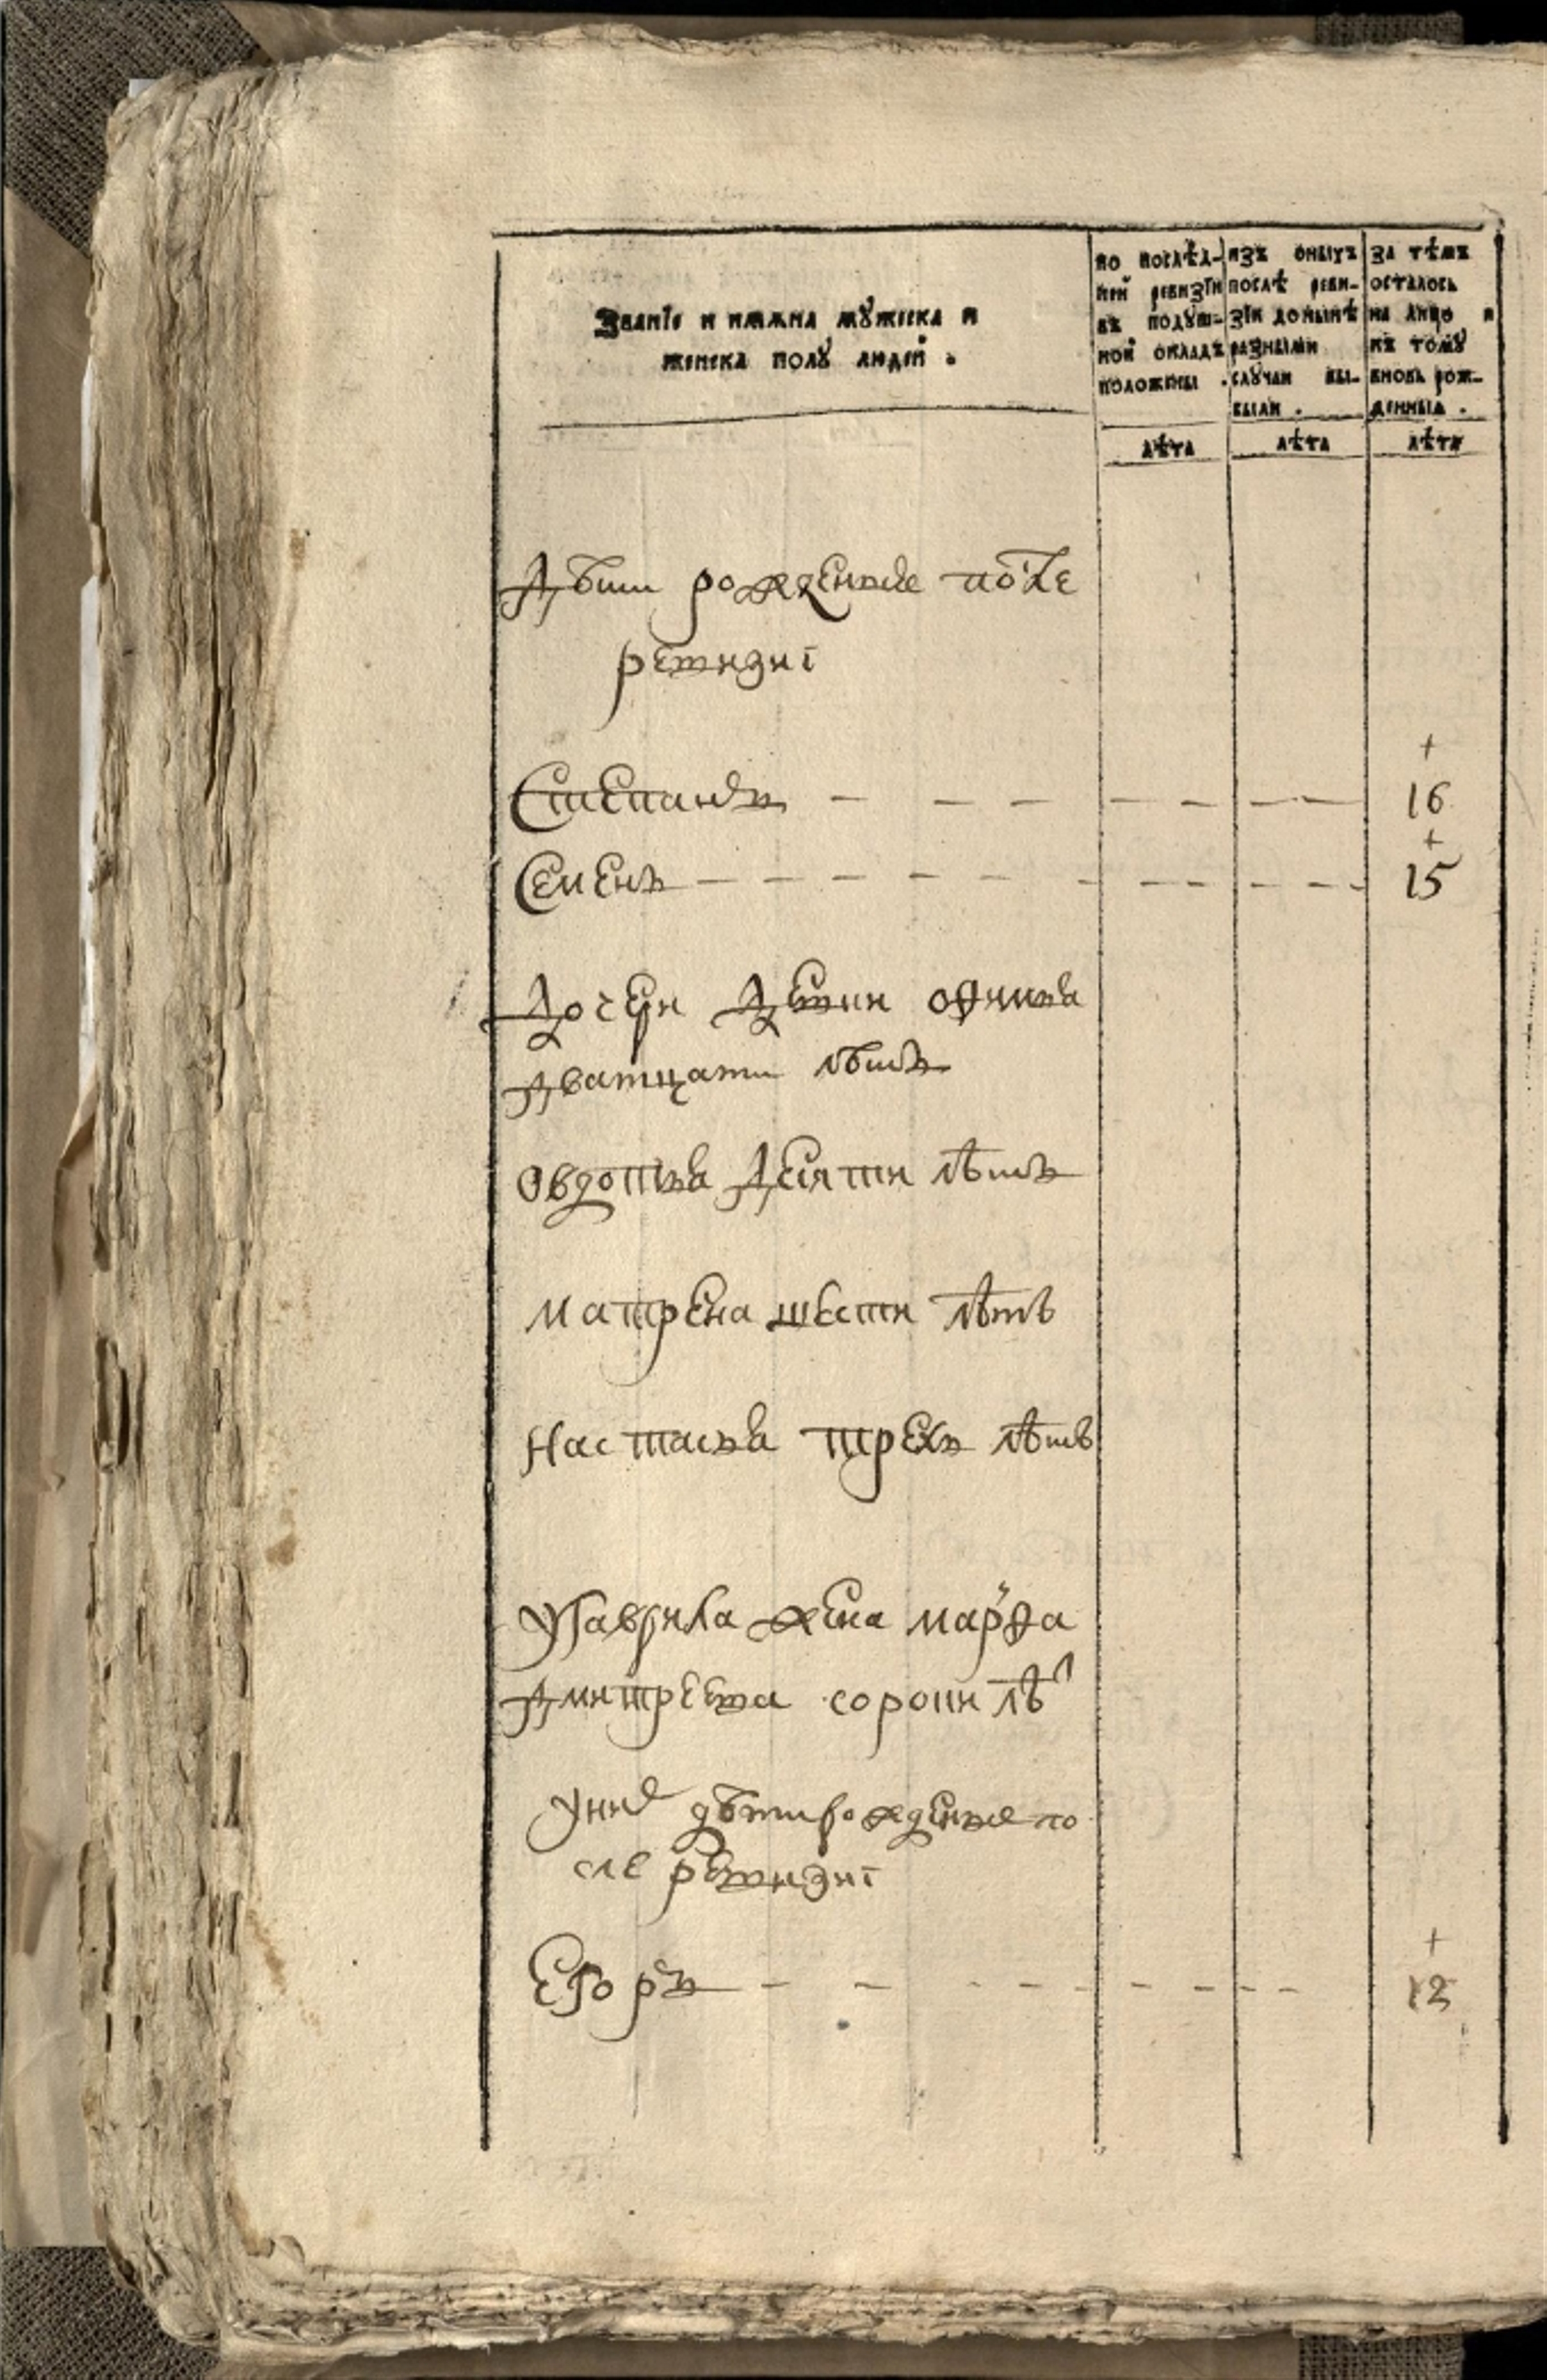 Званїе и имѧна мꙋжеска и
женска полꙋ людей .
по послѣд-
ней ревизїи
въ подꙋш-
ной окладъ
положены .
лѣта
изъ оныхъ
послѣ реви-
зїи донынѣ
разными
слꙋчаи вы-
были .
лѣта
за тѣмъ
осталось
на лицо и
къ томꙋ
вновь рож-
денныѧ .
лѣта
Дѣти рожденые после
ревизиї
Степанъ — — — — — — — 16
Семенъ — — — — — — — — 15
Дочери девки
дватцати лѣтъ
Овдотья десяти лѣтъ
Матрена шести лѣтъ
Настасья трехъ лѣтъ
УГаврила жена марфа
Дмитреева сороки лѣ
Уних дѣти рожденые по
сле ревизиї
Егоръ — — — — — — — 12